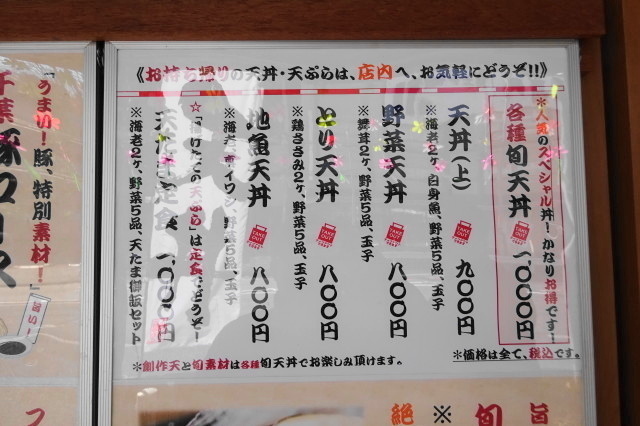 《お持ち帰りの天丼・天ぷらは、店内へ、お気軽にどうぞ!!》
※人気のスペシャル丼!かなりお得です!
各種旬天丼 一、〇〇〇円
天丼(上) 九〇〇円
※海老2ヶ、白身魚、野菜5品、玉子
野菜天丼 八〇〇円
※舞茸2ヶ、野菜5品、玉子
とり天丼 八〇〇円
※鶏ささみ2ヶ、野菜5品、玉子
地魚天丼 八〇〇円
※海老、イワシ、野菜5品、玉子
☆「揚げたての天ぷら」は定食で、どうぞ!
天たま定食 一、〇〇〇円
※海老2ヶ、野菜5品、天たま御飯セット
※創作天と旬素材は各種旬天丼でお楽しみ頂けます。
※価格は全て、税込です。
TAKE OUT
TAKE OUT
TAKE OUT
TAKE OUT
TAKE OUT
「うまい!豚、特別素材!」
千葉豚ロース
旨い!
旨
旬
※
絶
フ